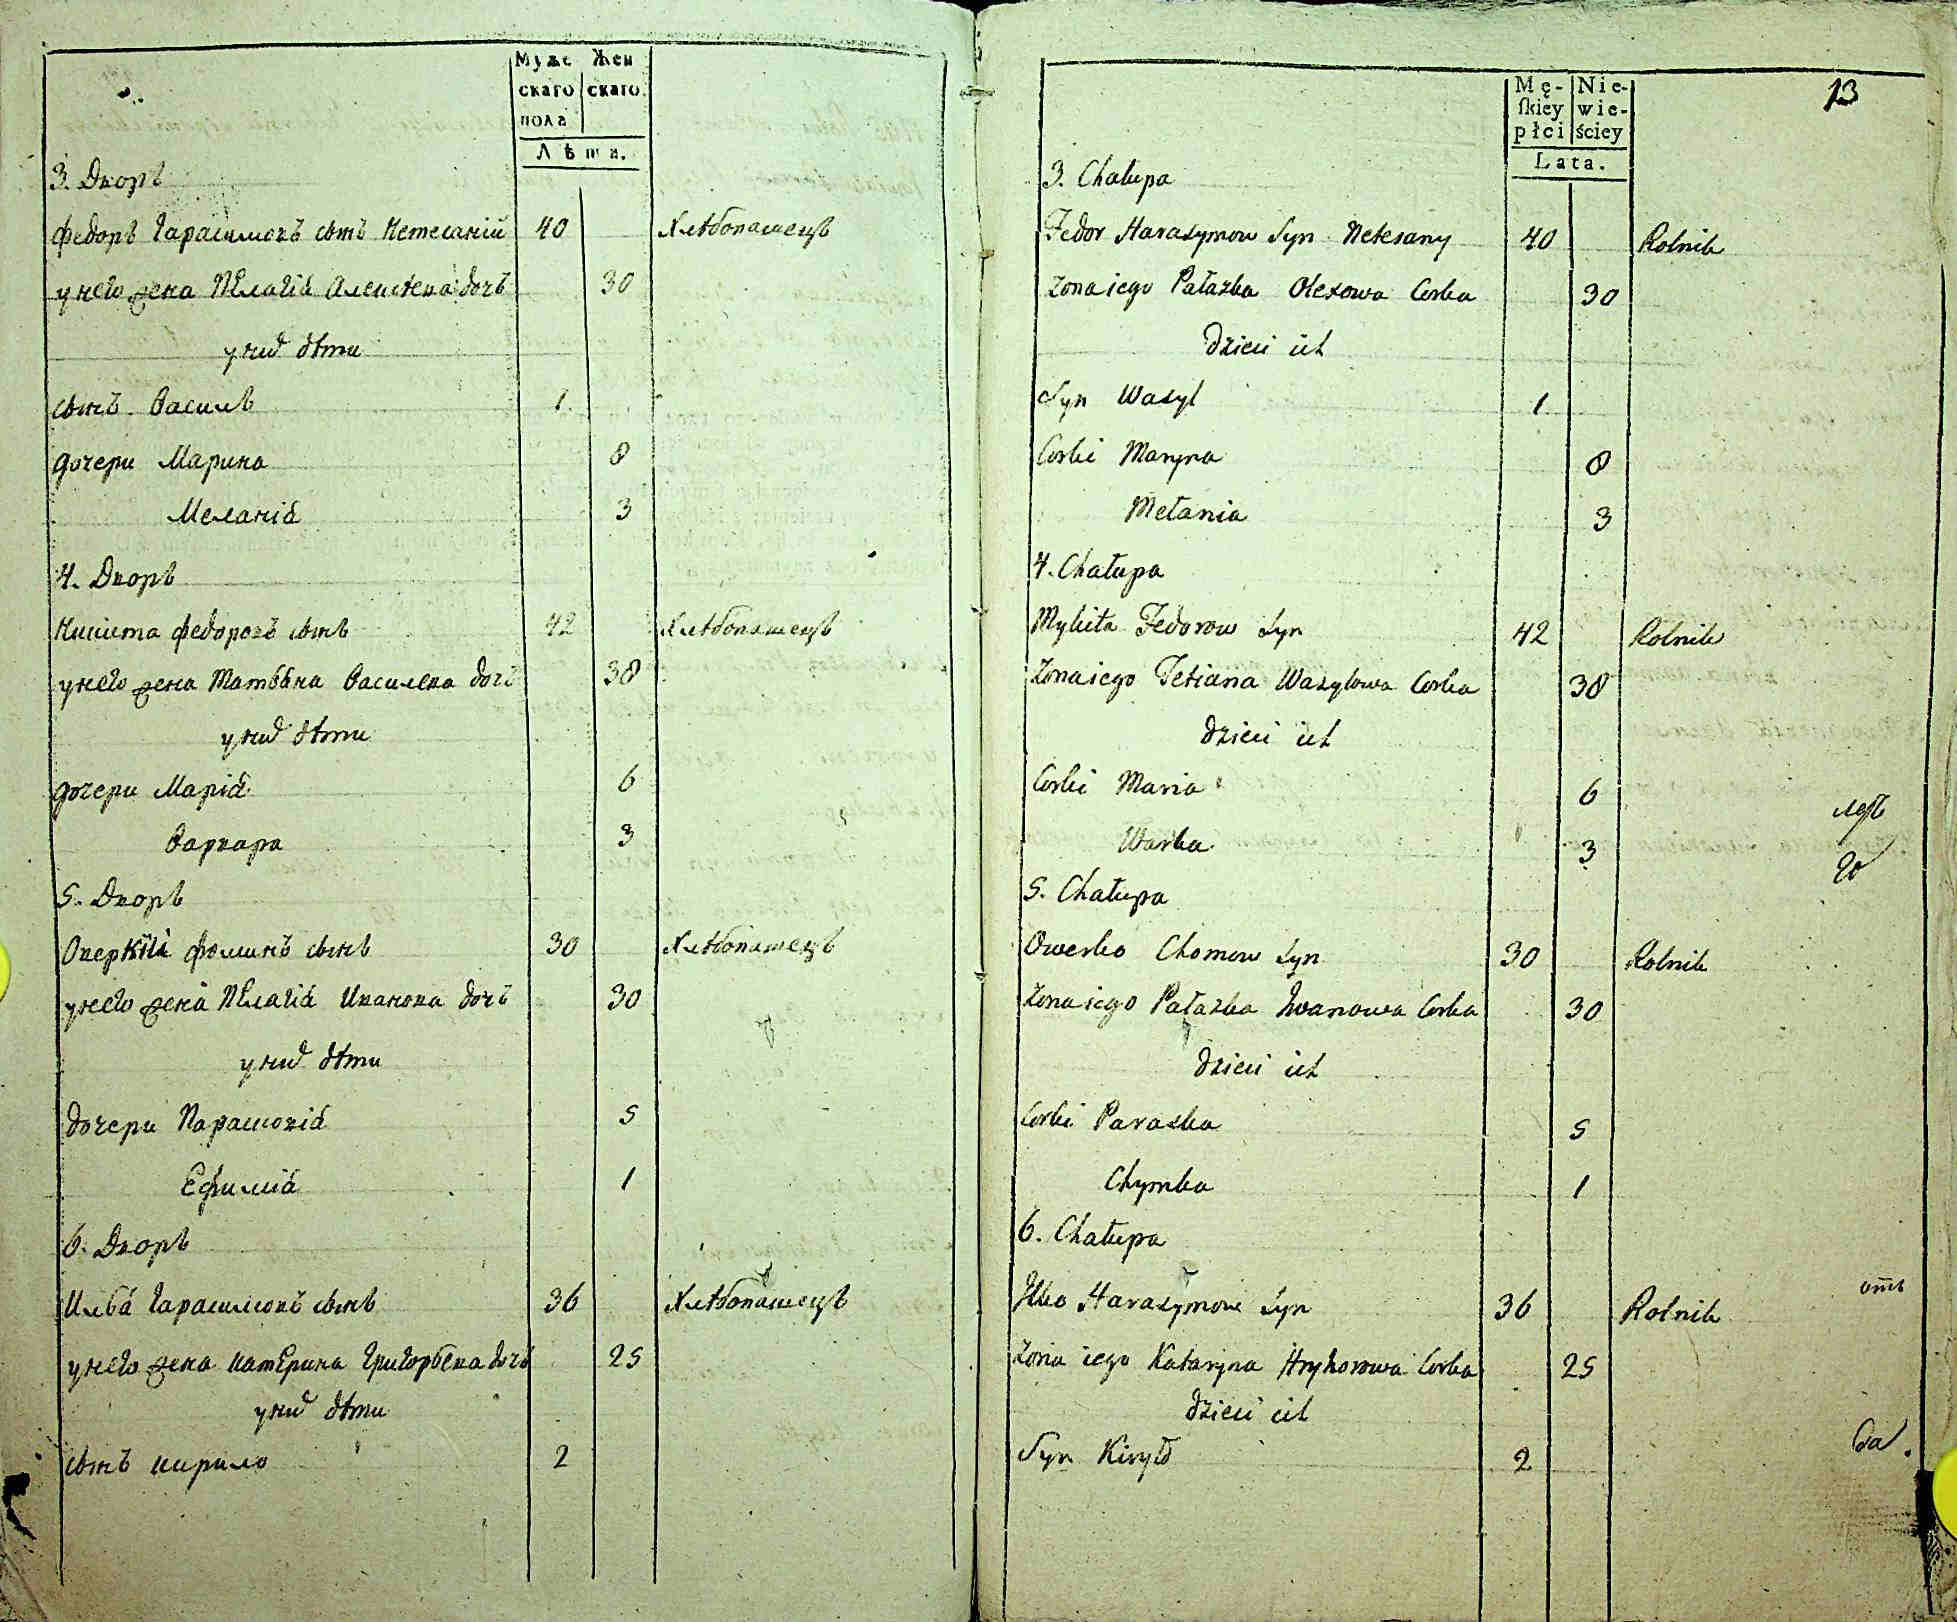 Муже Жен
скаго скаго
пола
Лѣта.
3. Дворъ
Федоръ Гарасимовъ сынъ Нетесаній 40 Хлѣбопашецъ
у него жена Пелагіа Алексѣева дочь 30
у них дѣти
сынъ Василь 1
дочери Марина 8
Меланіа 3
4. Дворъ
Никита Федоровъ сынъ 42 Хлѣбопашецъ
у него жена Татьяна Василева дочь 38
у них дѣти
дочери Маріа 6
Варвара 3
5. Дворъ
Оверкій Фоминъ сынъ 30 Хлѣбопашецъ
у него жена Пелагіа Иванова дочь 30
у них дѣти
дочери Парасковіа 5
Ефиміа 1
6. Дворъ
Илья Гарасимовъ сынъ 36 Хлѣбопашецъ
у него жена Катерина Григорьева дочь 25
у них дѣти
сынъ Кирило 2
13
Mę- Nie-
skiey wie-
płci ściey
Lata.
3. Chałupa
Fedor Harasymow Syn Netesany 40 Rolnik
Zona iego Pałazka Olexowa Corka 30
Dzieci ich
Syn Wasyl 1
Corki Maryna 8
Mełania 3
4. Chałupa
Mykita Fedorow Syn 42 Rolnik
Zona iego Tetiana Wasylowa Corka 38
Dzieci ich
Corki Maria 6
Warka 3
5. Chałupa
Owerko Chomow Syn 30 Rolnik
Zona iego Pałazka Iwanowa Corka 30
Dzieci ich
Corki Paraska 5
Chymka 1
6. Chałupa
Ilko Harasymow Syn 36 Rolnik
Zona iego Kataryna Hryhorowa Corka 25
Dzieci ich
Syn Kiryło 2